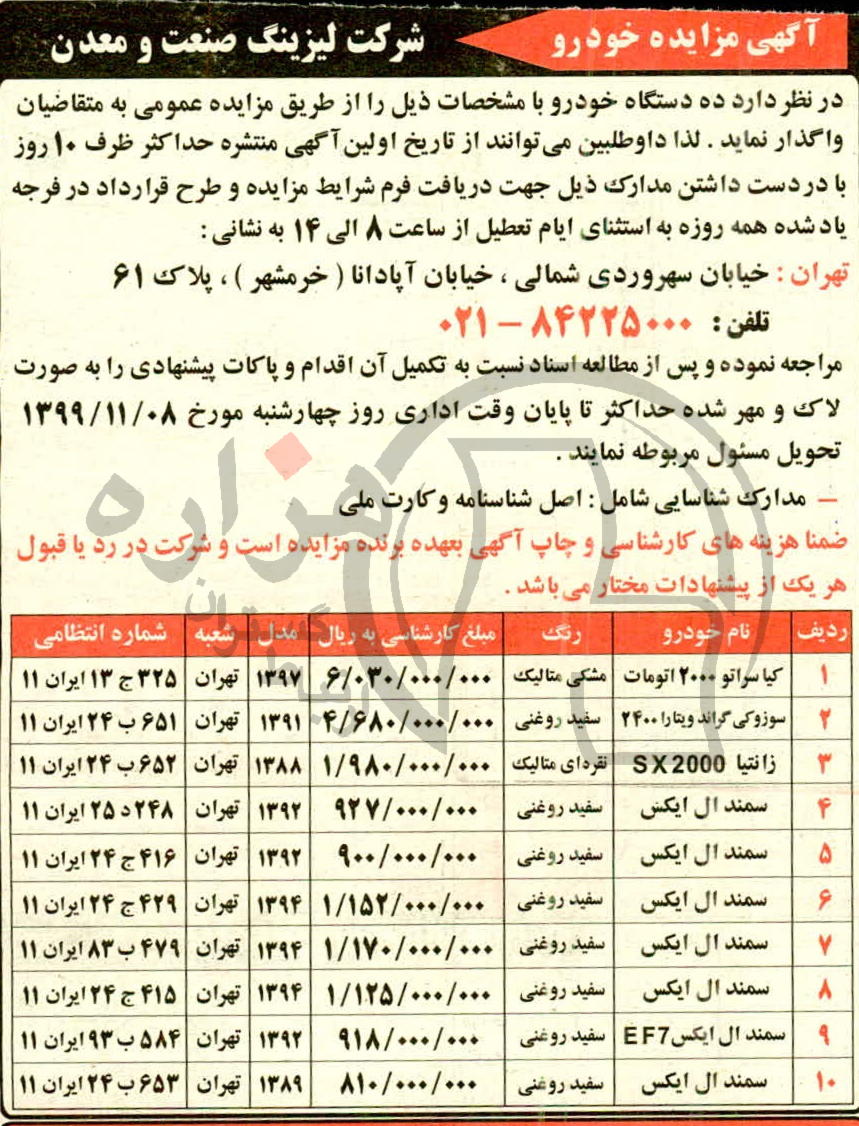 آگهی مزایده خودرو
شرکت لیزینگ صنعت و معدن
در نظر دارد ده دستگاه خودرو با مشخصات ذیل را از طریق مزایده عمومی به متقاضیان
واگذار نماید . لذا داوطلبین می‌توانند از تاریخ اولین آگهی منتشره حداکثر ظرف ۱۰ روز
با در دست داشتن مدارک ذیل جهت دریافت فرم شرایط مزایده و طرح قرارداد در فرجه
یاد شده همه روزه به استثنای ایام تعطیل از ساعت ۸ الی ۱۴ به نشانی :
تهران : خیابان سهروردی شمالی ، خیابان آپادانا ( خرمشهر ) ، پلاک ۶۱
تلفن : ۸۴۲۲۵۰۰۰ – ۰۲۱
مراجعه نموده و پس از مطالعه اسناد نسبت به تکمیل آن اقدام و پاکات پیشنهادی را به صورت
لاک و مهر شده حداکثر تا پایان وقت اداری روز چهارشنبه مورخ ۱۳۹۹/۱۱/۰۸
تحویل مسئول مربوطه نمایند .
– مدارک شناسایی شامل : اصل شناسنامه و کارت ملی
ضمنا هزینه های کارشناسی و چاپ آگهی بعهده برنده مزایده است و شرکت در رد یا قبول
هر یک از پیشنهادات مختار می باشد .
ردیف نام خودرو رنگ مبلغ کارشناسی به ریال مدل شعبه شماره انتظامی
۱ کیا سراتو ۲۰۰۰ اتومات مشکی متالیک ۶/۰۳۰/۰۰۰/۰۰۰ ۱۳۹۷ تهران ۳۲۵ ج ۱۳ ایران ۱۱
۲ سوزوکی گراند ویتارا ۲۴۰۰ سفید روغنی ۴/۶۸۰/۰۰۰/۰۰۰ ۱۳۹۱ تهران ۶۵۱ ب ۲۴ ایران ۱۱
۳ زانتیا SX2000 نقره‌ای متالیک ۱/۹۸۰/۰۰۰/۰۰۰ ۱۳۸۸ تهران ۶۵۲ ب ۲۴ ایران ۱۱
۴ سمند ال ایکس سفید روغنی ۹۲۷/۰۰۰/۰۰۰ ۱۳۹۲ تهران ۲۴۸ د ۲۵ ایران ۱۱
۵ سمند ال ایکس سفید روغنی ۹۰۰/۰۰۰/۰۰۰ ۱۳۹۲ تهران ۴۱۶ ج ۲۴ ایران ۱۱
۶ سمند ال ایکس سفید روغنی ۱/۱۵۲/۰۰۰/۰۰۰ ۱۳۹۴ تهران ۴۲۹ ج ۲۴ ایران ۱۱
۷ سمند ال ایکس سفید روغنی ۱/۱۷۰/۰۰۰/۰۰۰ ۱۳۹۴ تهران ۴۷۹ ب ۸۳ ایران ۱۱
۸ سمند ال ایکس سفید روغنی ۱/۱۲۵/۰۰۰/۰۰۰ ۱۳۹۴ تهران ۴۱۵ ج ۲۴ ایران ۱۱
۹ سمند ال ایکس EF7 سفید روغنی ۹۱۸/۰۰۰/۰۰۰ ۱۳۹۲ تهران ۵۸۴ ب ۹۳ ایران ۱۱
۱۰ سمند ال ایکس سفید روغنی ۸۱۰/۰۰۰/۰۰۰ ۱۳۸۹ تهران ۶۵۳ ب ۲۴ ایران ۱۱
هزاره